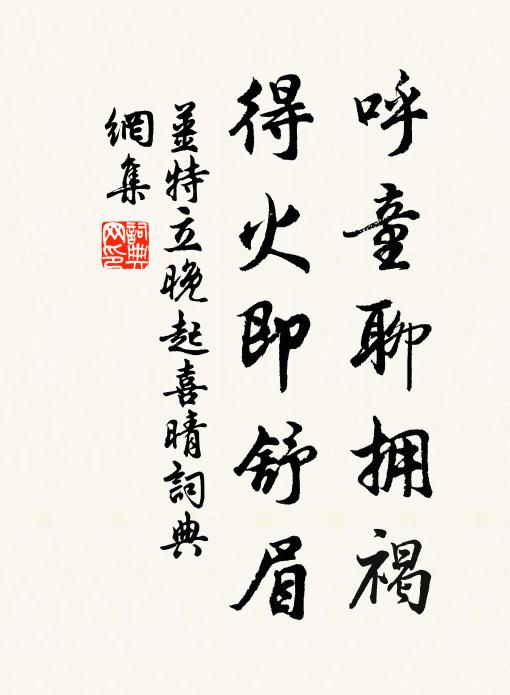 呼童聊拥褐
得火即舒眉
姜特立晚起喜晴詞典
網集
詞典
网印